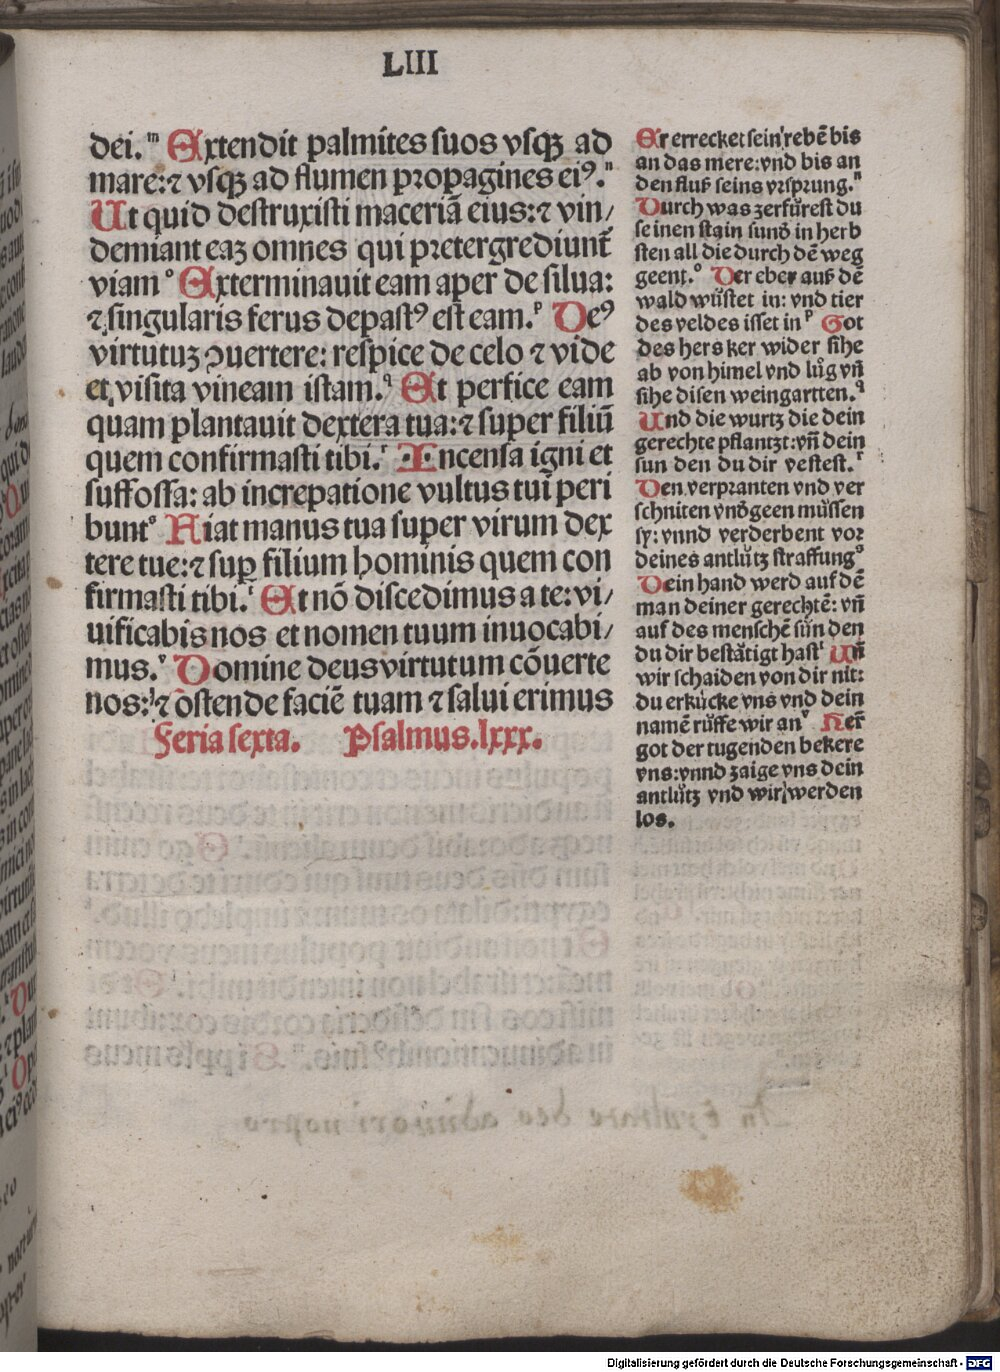 LIII
dei.ᵐ Extendit palmites suos vsqꝫ ad
mare:⁊ vsqꝫ ad flumen propagines eiꝰ.ⁿ
Ut quid destruxisti maceriā eius:⁊ vin/
demiant eaꝫ omnes qui pretergrediunt̄
viam ᵒ Exterminauit eam aper de silua:
⁊ singularis ferus depastꝰ est eam.ᵖ Deꝰ
virtutuꝫ ꝯuertere: respice de celo ⁊ vide
et visita vineam istam.ᑫ Et perfice eam
quam plantauit dextera tua:⁊ super filiū
quem confirmasti tibi.ʳ Incensa igni et
suffossa: ab increpatione vultus tui peri
buntˢ Fiat manus tua super virum dex
tere tue:⁊ suꝑ filium hominis quem con
firmasti tibi.ᵗ Et nō discedimus a te: vi/
uificabis nos et nomen tuum inuocabi/
mus.ᵛ Domine deus virtutum cōuerte
nos: ⁊ ostende faciē tuam ⁊ salui erimus
Feria sexta. Psalmus.lxxx.
Er errecket sein rebē bis
an das mere: vnd bis an
den fluß seins vrsprung.ⁿ
Durch was zerfůrest du
seinen stain sunō in herb
sten all die durch dē weg
geent.ᵒ Der eber auß dē
wald wůstet in: vnd tier
des veldes isset in ᵖ Got
des hers ker wider sihe
ab von himel vnd lůg vn̄
sihe disen weingartten.ᑫ
Und die wurtz die dein
gerechte pflantzt: vn̄ dein
sun den du dir vestest.ʳ
Den verpranten vnd ver
schniten vnōgeen můssen
sy: vnnd verderbent vor
deines antlůtz straffungˢ
Dein hand werd auf dē
man deiner gerechtē: vn̄
auf des menschē sůn den
du dir beståtigt hastᵗ Un̄
wir schaiden von dir nit:
du erkůcke vns vnd dein
namē růffe wir anᵛ Herr̄
got der tugenden bekere
vns: vnnd zaige vns dein
antlůtz vnd wir werden
los.
Digitalisierung gefördert durch die Deutsche Forschungsgemeinschaft - DFG